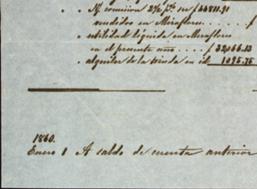 " " My comision 2½ % sre $44811.91
vendidos en Miraflores . . . . $
" utilidad líquida en Miraflores
en el presente año . . . . $ 32,066.13
" alquiler de la tienda en id. 1095.75
1860.
Enero 1 A saldo de cuenta anterior